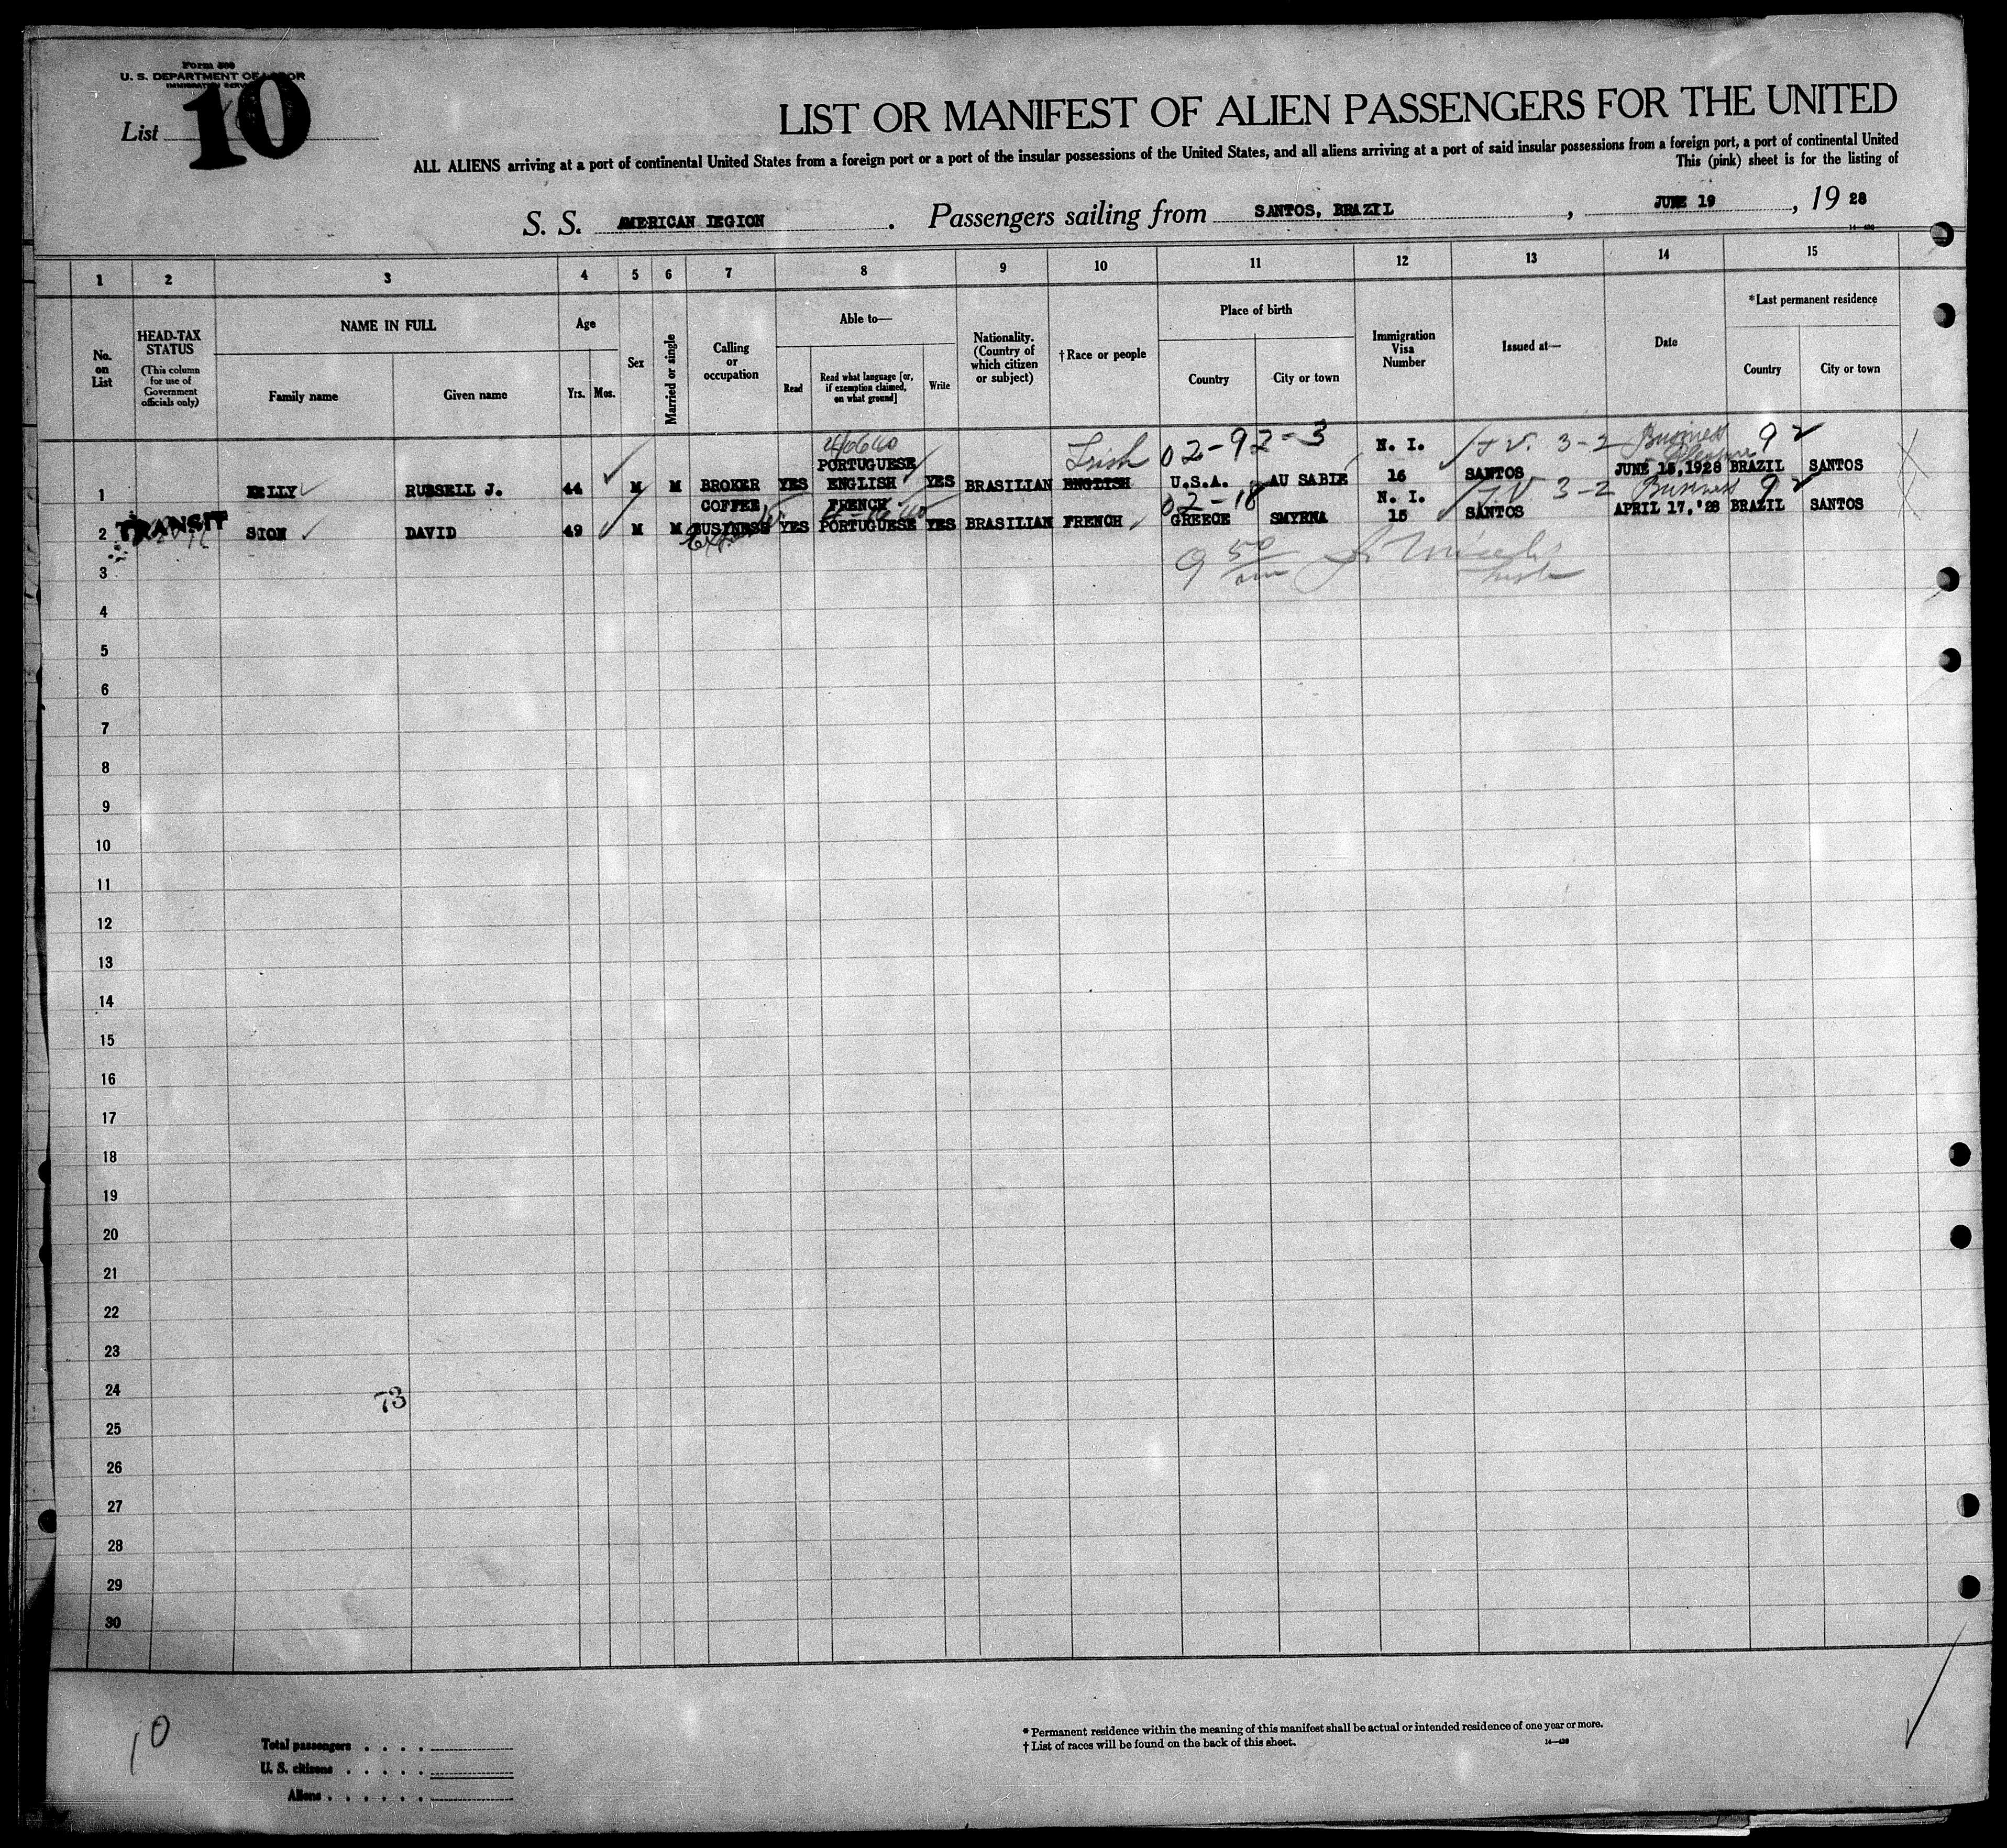 Form 500
U. S. DEPARTMENT OF LABOR
IMMIGRATION SERVICE
List 10
LIST OR MANIFEST OF ALIEN PASSENGERS FOR THE UNITED
ALL ALIENS arriving at a port of continental United States from a foreign port or a port of the insular possessions of the United States, and all aliens arriving at a port of said insular possessions from a foreign port, a port of continental United
This (pink) sheet is for the listing of
S. S. AMERICAN LEGION . Passengers sailing from SANTOS, BRAZIL , JUNE 19 , 19 28
1 2 3 4 5 6 7 8 9 10 11 12 13 14 15
No. on List
HEAD-TAX STATUS
(This column for use of Government officials only)
NAME IN FULL
Family name
Given name
Age
Yrs. Mos.
Sex
Married or single
Calling or occupation
Able to—
Read
Read what language [or, if exemption claimed, on what ground]
Write
Nationality. (Country of which citizen or subject)
†Race or people
Place of birth
Country
City or town
Immigration Visa Number
Issued at—
Date
*Last permanent residence
Country
City or town
PORTUGUESE Irish 02-92-3 N. I. 3-2 Business Pleasure 92
1 KELLY RUSSELL J. 44 M M BROKER YES ENGLISH YES BRASILIAN ENGLISH U.S.A. AU SABLE 16 SANTOS JUNE 15, 1928 BRAZIL SANTOS
COFFEE FRENCH 02-18 N. I. 3-2 Business 92
2 TRANSIT SION DAVID 49 M M BUSINESS YES PORTUGUESE YES BRASILIAN FRENCH GREECE SMYRNA 15 SANTOS APRIL 17, '28 BRAZIL SANTOS
9 50 am
3
4
5
6
7
8
9
10
11
12
13
14
15
16
17
18
19
20
21
22
23
24
73
25
26
27
28
29
30
10
Total passengers . . . .
U. S. citizens . . . . .
Aliens . . . . . .
* Permanent residence within the meaning of this manifest shall be actual or intended residence of one year or more.
† List of races will be found on the back of this sheet.